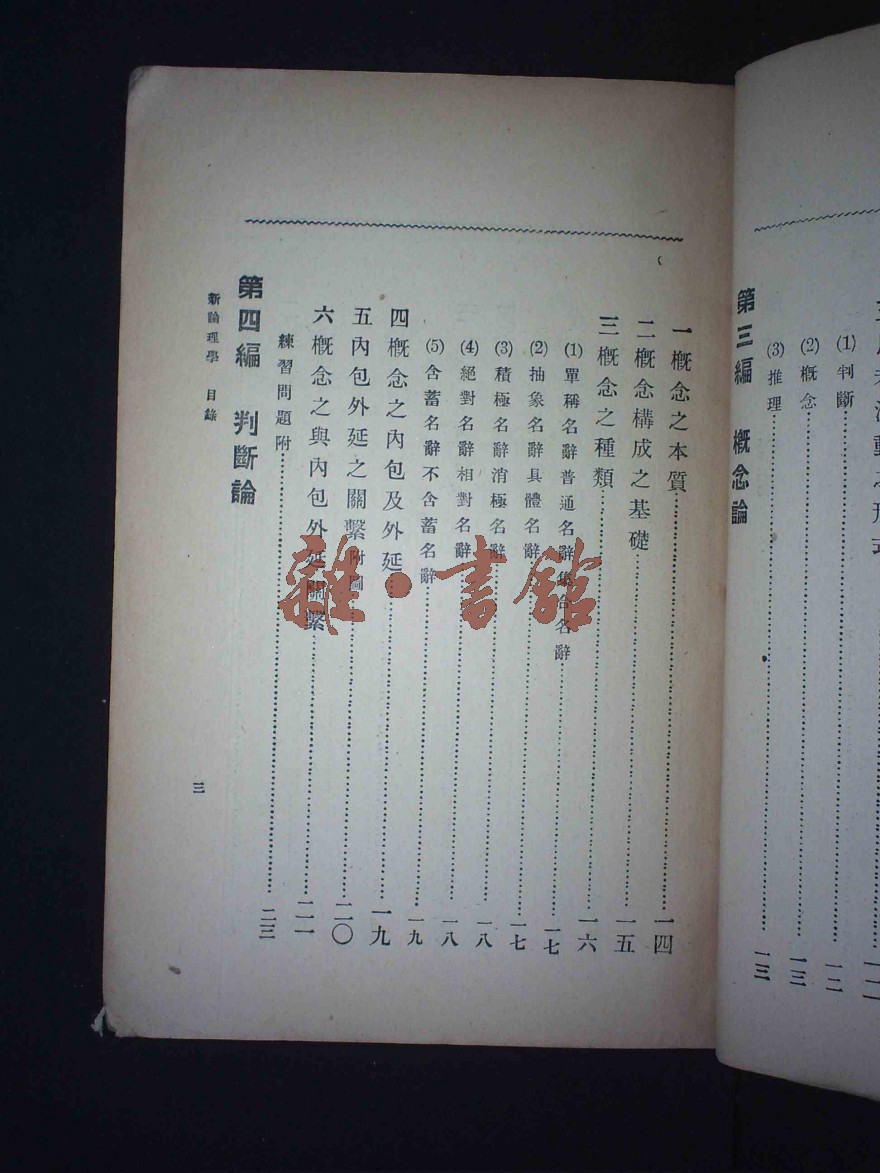 (1)判斷……一二
(2)概念……一三
(3)推理……一三
第三編 概念論
一 概念之本質……一四
二 概念構成之基礎……一五
三 概念之種類……一六
(1)單稱名辭普通名辭集合名辭……一七
(2)抽象名辭具體名辭……一七
(3)積極名辭消極名辭……一八
(4)絕對名辭相對名辭……一八
(5)含蓄名辭不含蓄名辭……一九
四 概念之內包及外延……一九
五 內包外延之關繫附圖……二〇
六 概念之與內包外延關繫……二一
練習問題附……二三
第四編 判斷論
新論理學 目錄
三
雜·書館